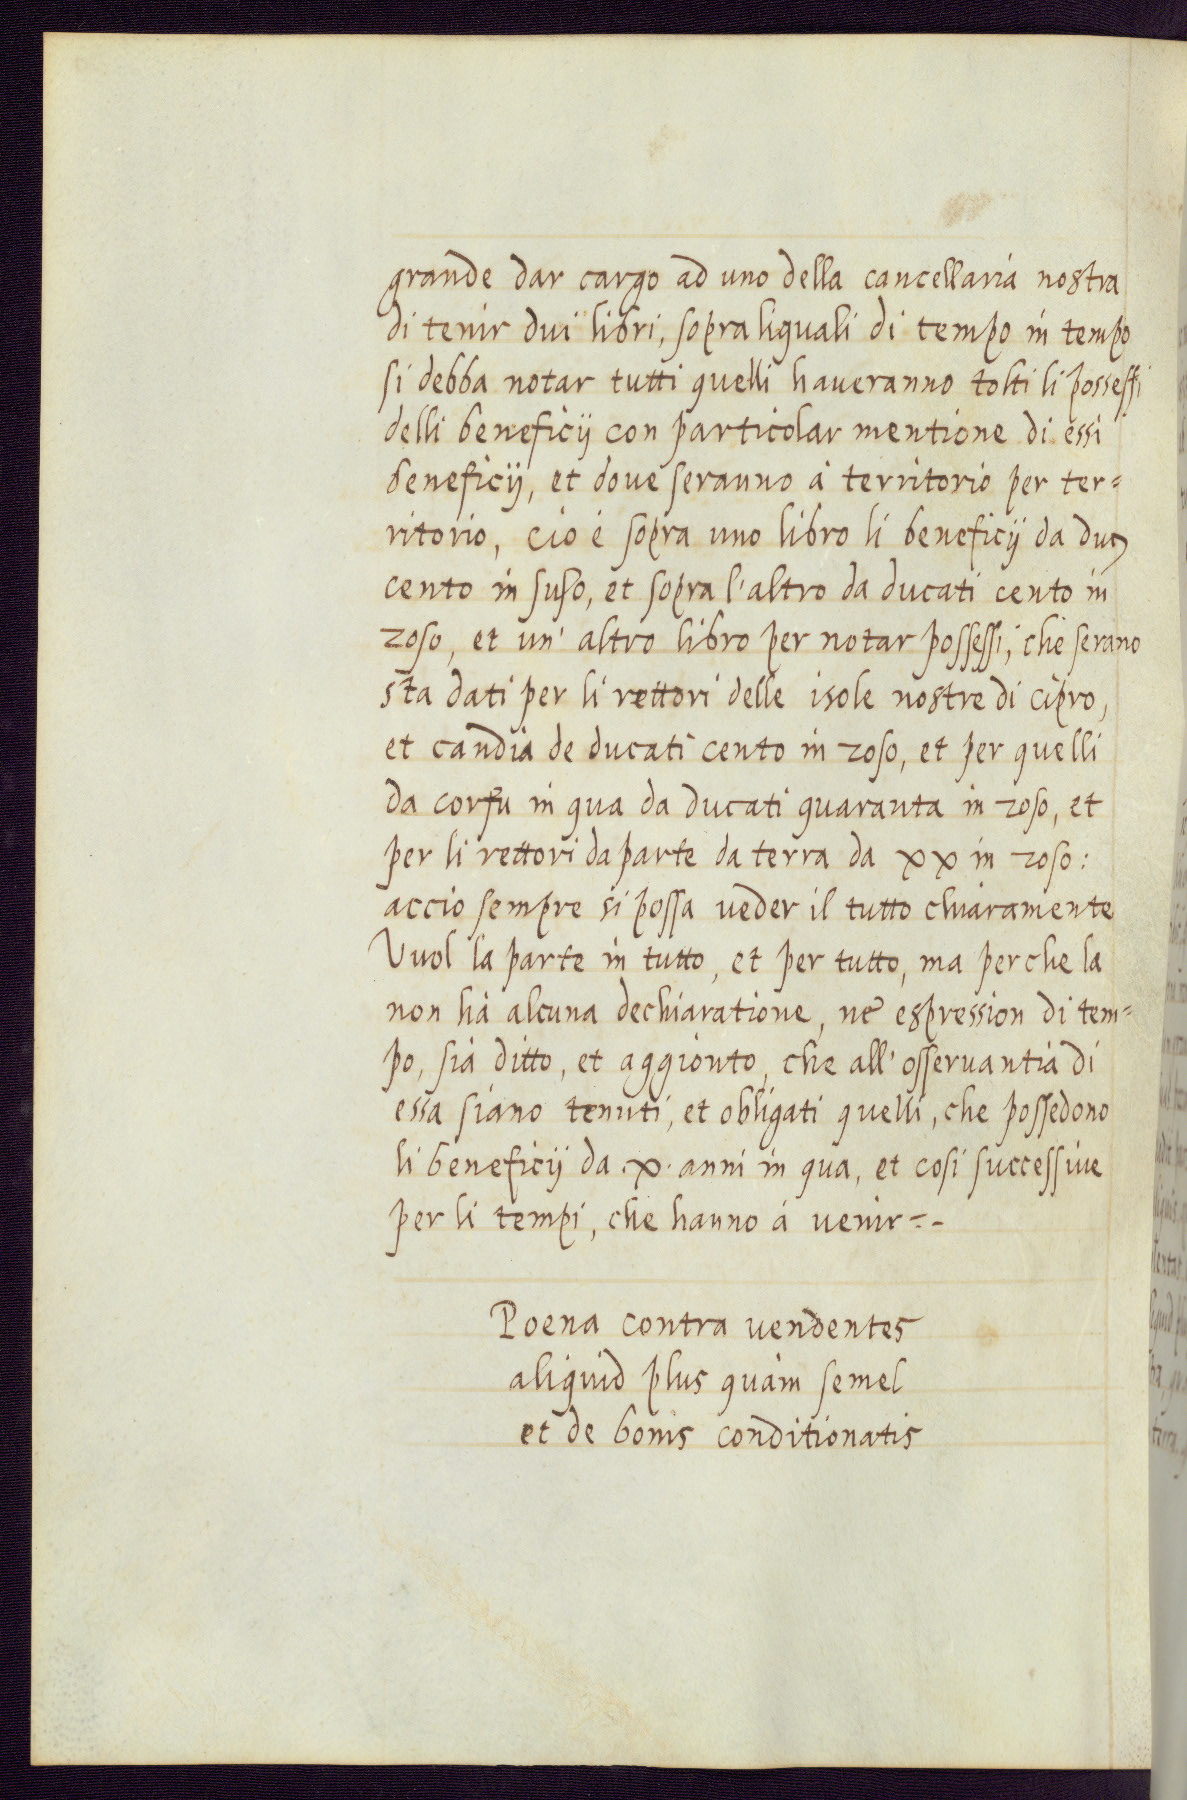 grande dar cargo ad uno della cancellaria nostra
di tenir dui libri, sopra liquali di tempo in tempo
si debba notar tutti quelli haveranno tolti li possessi
delli beneficij con particolar mentione di essi
beneficij, et dove seranno à territorio per ter=
ritorio, cio è sopra uno libro li beneficij da duc
cento in suso, et sopra l'altro da ducati cento in
zoso, et un' altro libro per notar possessi, che serano
sta dati per li rettori delle isole nostre di cipro,
et candia de ducati cento in zoso, et per quelli
da corfu in qua da ducati quaranta in zoso, et
per li rettori da parte da terra da xx in zoso:
accio sempre si possa veder il tutto chiaramente
Vuol la parte in tutto, et per tutto, ma perche la
non hà alcuna dechiaratione, ne espression di tem=
po, sia ditto, et aggionto, che all' osservantia di
essa siano tenuti, et obligati quelli, che possedono
li beneficij da .x. anni in qua, et cosi successive
per li tempi, che hanno à venir=-
Poena contra vendentes
aliquid plus quàm semel
et de bonis conditionatis